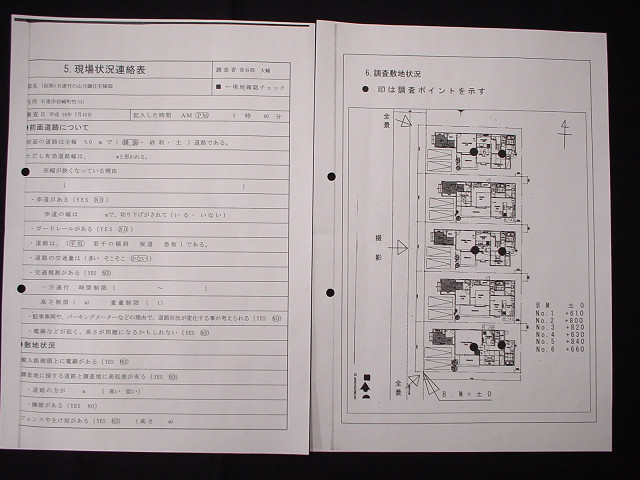 5.現場状況連絡表
調査者 長谷部 大輔
■ ←現地確認チェック
調査日 平成
記入した時間 AM PM 分
前面道路について
前面の道路は全幅 5.0 mで(舗装・砂利・土)道路である。
ただし有効道路幅は、 mと思われる。
※幅が狭くなっている理由
( )
・歩道がある(YES NO)
歩道の幅は mで、切り下げがされて(いる・いない)
・ガードレールがある(YES NO)
・道路は、(平坦 若干の傾斜 坂道 急坂)である。
・道路の交通量は(多い そこそこ 少ない)
・交通規制がある(YES NO)
一方通行 時間制限( ~ )
高さ制限( m) 重量制限( t)
・駐車車両や、パーキングメーターなどの理由で、道路状況が変化する事が考えられる(YES NO)
・電線などが低く、高さが問題になるかもしれない(YES NO)
敷地状況
搬入路側頭上に電線がある(YES NO)
調査地に接する道路と調査地に高低差が有る(YES NO)
・道路の方が m (高い 低い)
・擁壁がある(YES NO)
フェンスや生け垣がある(YES NO) (高さ m)
6.調査敷地状況
● 印は調査ポイントを示す
全景
撮影
全景
B.M=±0
BM ±0
No.1 +610
No.2 +800
No.3 +820
No.4 +630
No.5 +840
No.6 +660